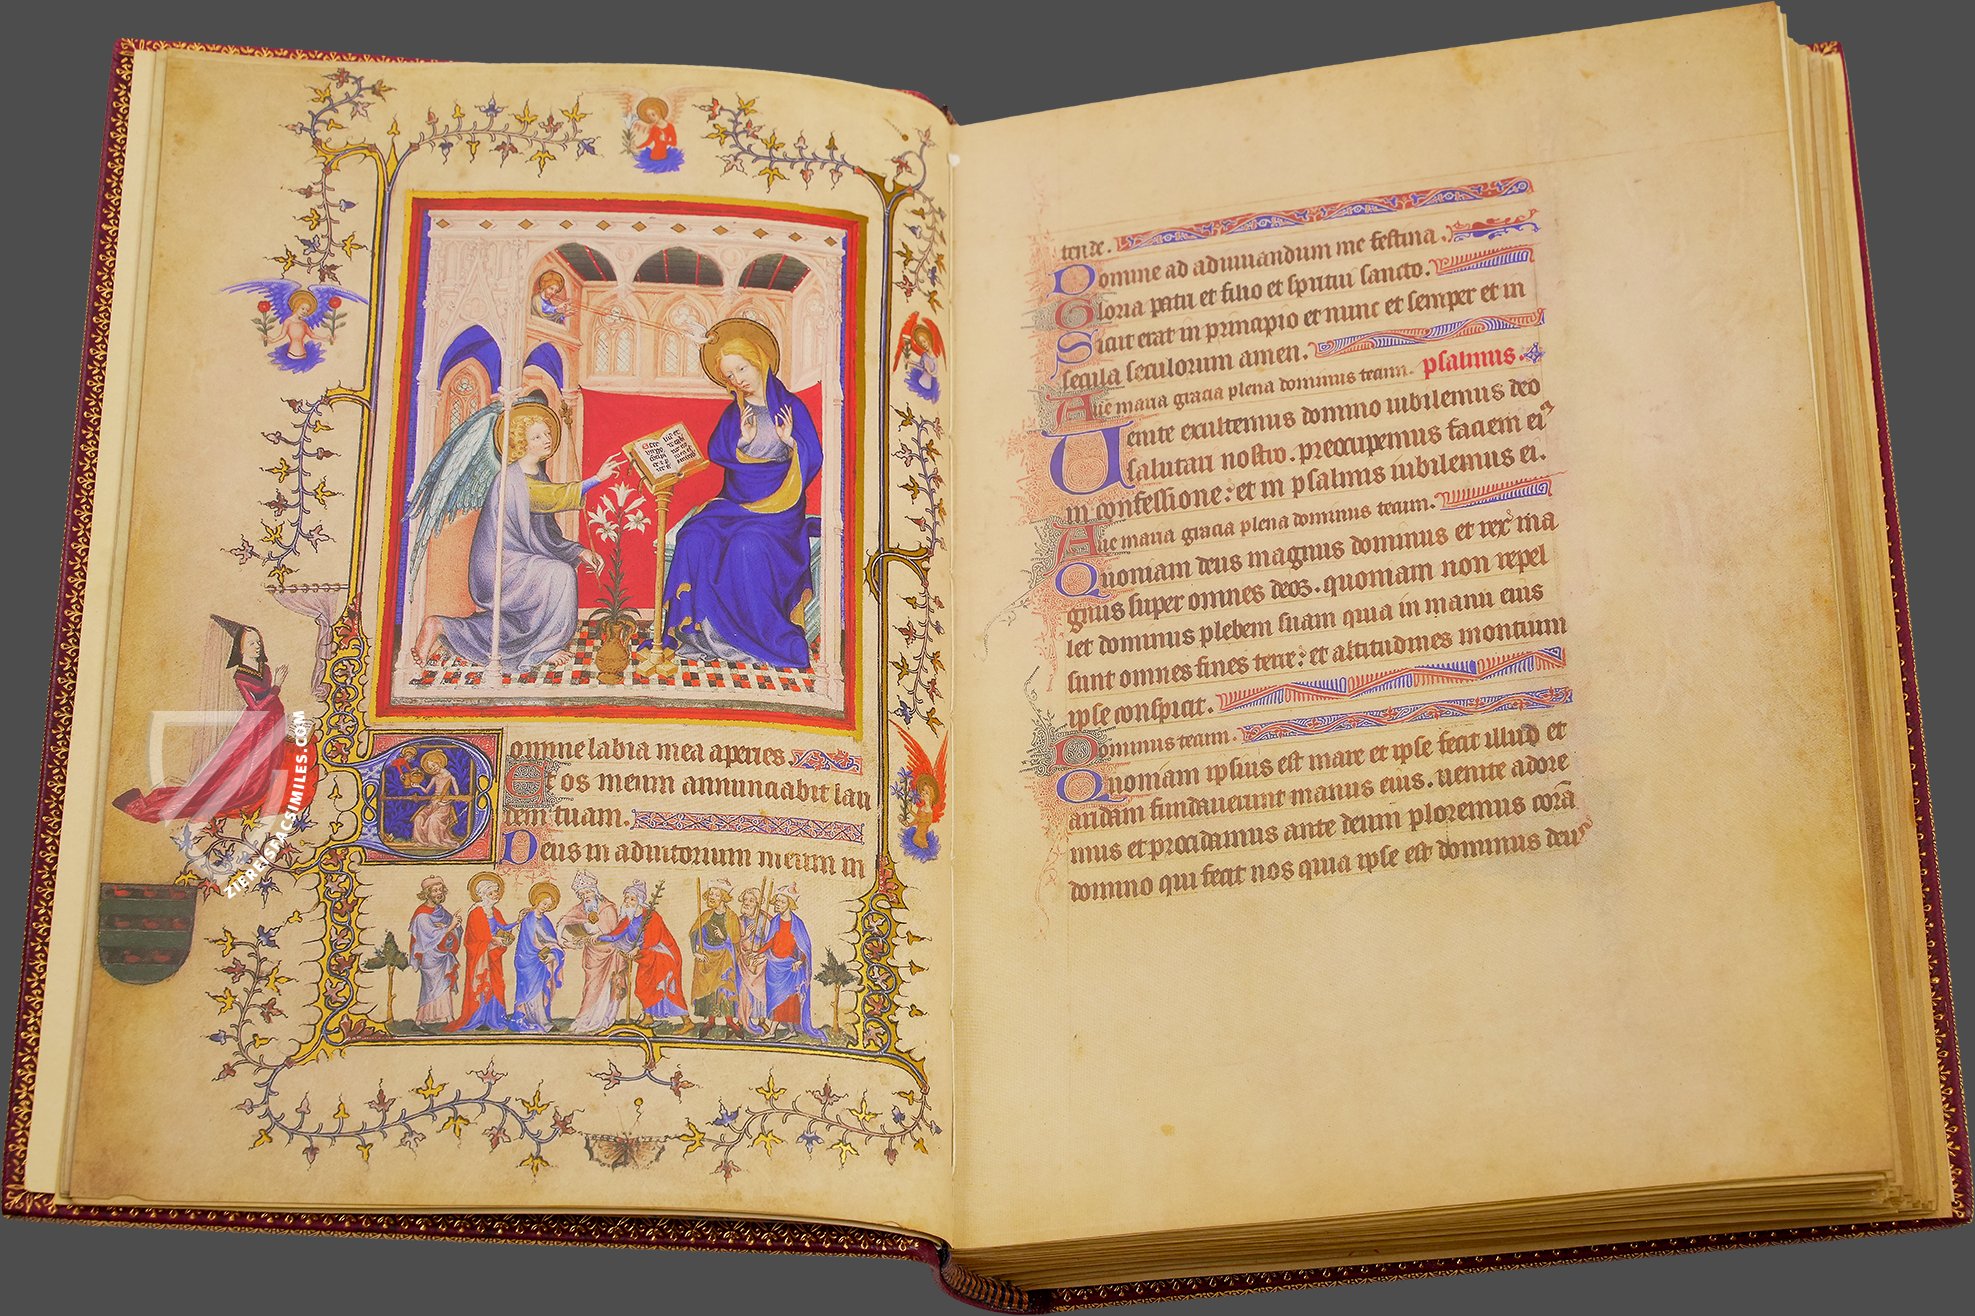 Domine labia mea aperies.
Et os meum annunciabit lau
tem tuam.
Deus in adiutorium meum in
tende.
Domine ad adiuuandum me festina.
Gloria patri et filio et spiritui sancto.
Sicut erat in principio et nunc et semper et in
secula seculorum amen.
Aue maria gracia plena dominus tecum. psalmus.
Uenite exultemus domino iubilemus deo
salutari nostro. preocupemus faciem ei⁹
in confessione: et in psalmis iubilemus ei.
Aue maria gracia plena dominus tecum.
Quoniam deus magnus dominus et rex ma
gnus super omnes deos. quoniam non repel
let dominus plebem suam quia in manu eius
sunt omnes fines terre: et altitudines montium
ipse conspicit.
Dominus tecum.
Quoniam ipsius est mare et ipse fecit illud et
aridam fundauerunt manus eius. uenite adore
mus et procidamus ante deum ploremus corā
domino qui fecit nos quia ipse est dominus deu⁹
ZIEREISFACSIMILES.COM